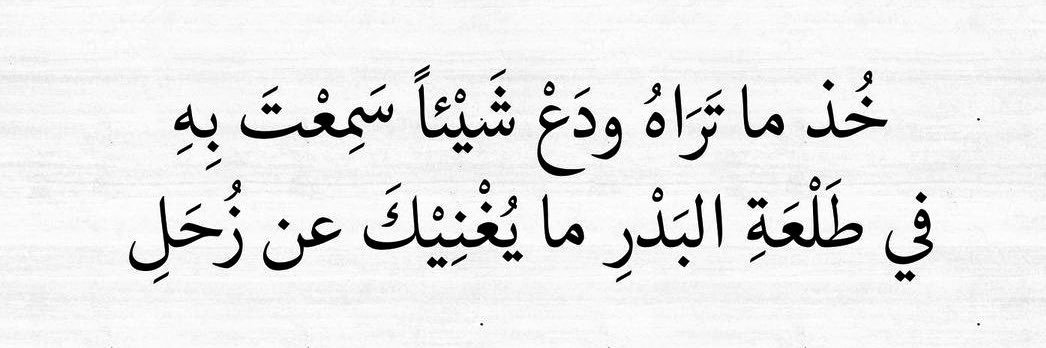 خُذ ما تَرَاهُ ودَعْ شَيْئاً سَمِعْتَ بِهِ
في طَلْعَةِ البَدْرِ ما يُغْنِيْكَ عن زُحَلِ